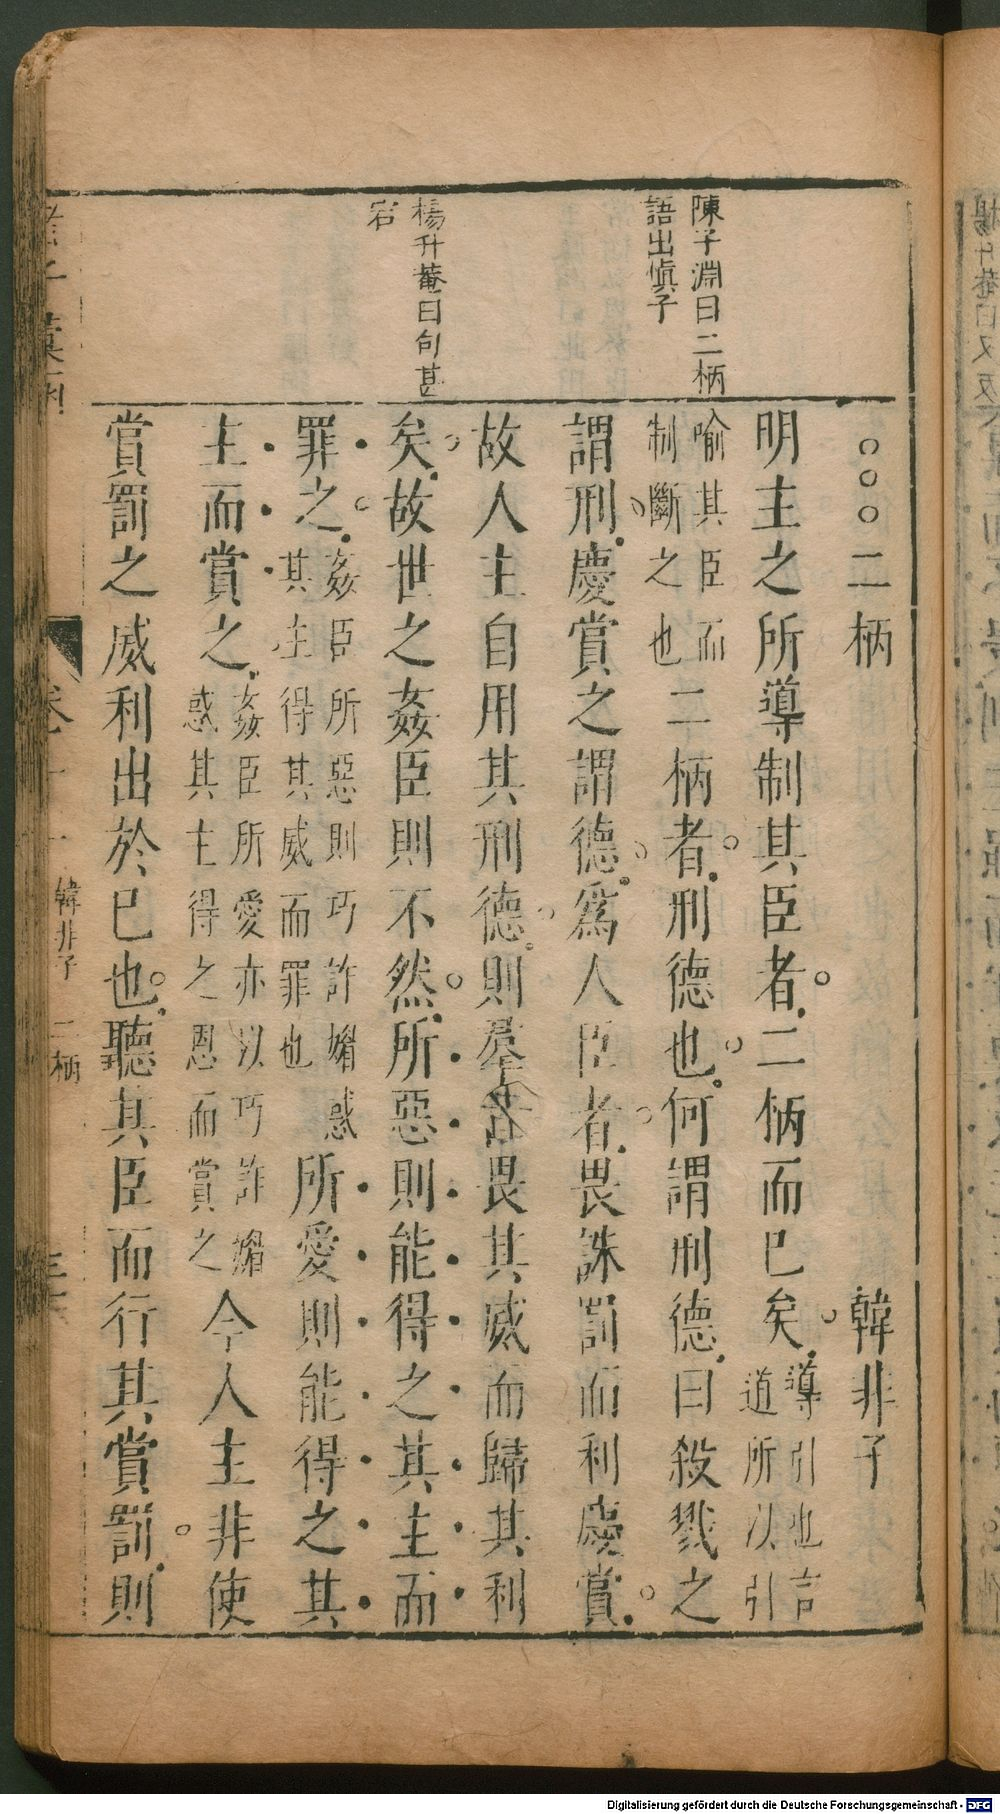 陳子淵曰二柄
語出慎子
楊升菴曰句甚
宕
二柄 韓非子
明主之所導制其臣者二柄而已矣導引也言
道所以引
喻其臣而
制斷之也二柄者刑德也何謂刑德曰殺戮之
謂刑慶賞之謂德爲人臣者畏誅罰而利慶賞
故人主自用其刑德則羣臣畏其威而歸其利
矣故世之姦臣則不然所惡則能得之其主而
罪之姦臣所惡則巧詐媚惑
其主得其威而罪也所愛則能得之其
主而賞之姦臣所愛亦以巧詐媚
惑其主得之恩而賞之今人主非使
賞罰之威利出於已也聽其臣而行其賞罰則
韓非子 二柄
Digitalisierung gefördert durch die Deutsche Forschungsgemeinschaft - DFG